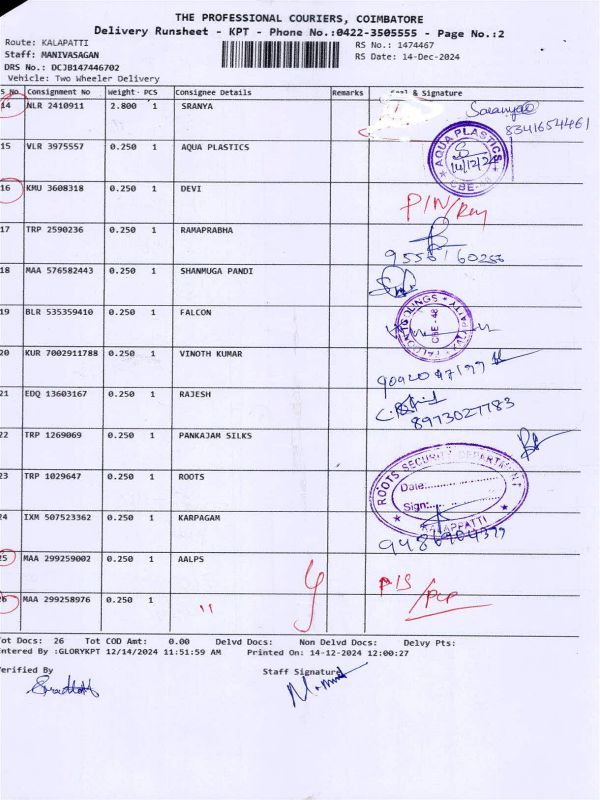 THE PROFESSIONAL COURIERS, COIMBATORE
Delivery Runsheet - KPT - Phone No.:0422-3505555 - Page No.:2
Route: KALAPATTI RS No.: 1474467
Staff: MANIVASAGAN RS Date: 14-Dec-2024
DRS No.: DCJB147446702
Vehicle: Two Wheeler Delivery
S No. Consignment No Weight- PCS Consignee Details Remarks Seal & Signature
14 NLR 2410911 2.800 1 SRANYA
8341654461
15 VLR 3975557 0.250 1 AQUA PLASTICS AQUA PLASTICS
14/12/24
16 KMU 3608318 0.250 1 DEVI
17 TRP 2590236 0.250 1 RAMAPRABHA
18 MAA 576582443 0.250 1 SHANMUGA PANDI
19 BLR 535359410 0.250 1 FALCON
CBE - 48
20 KUR 7002911788 0.250 1 VINOTH KUMAR
21 EDQ 13603167 0.250 1 RAJESH
8973027783
22 TRP 1269069 0.250 1 PANKAJAM SILKS
23 TRP 1029647 0.250 1 ROOTS ROOTS SECURITY DEPARTMENT
Date:
Sign:
KALAPPATTI
24 IXM 507523362 0.250 1 KARPAGAM
25 MAA 299259002 0.250 1 AALPS
26 MAA 299258976 0.250 1 "
Tot Docs: 26 Tot COD Amt: 0.00 Delvd Docs: Non Delvd Docs: Delvy Pts:
Entered By :GLORYKPT 12/14/2024 11:51:59 AM Printed On: 14-12-2024 12:00:27
Verified By Staff Signature